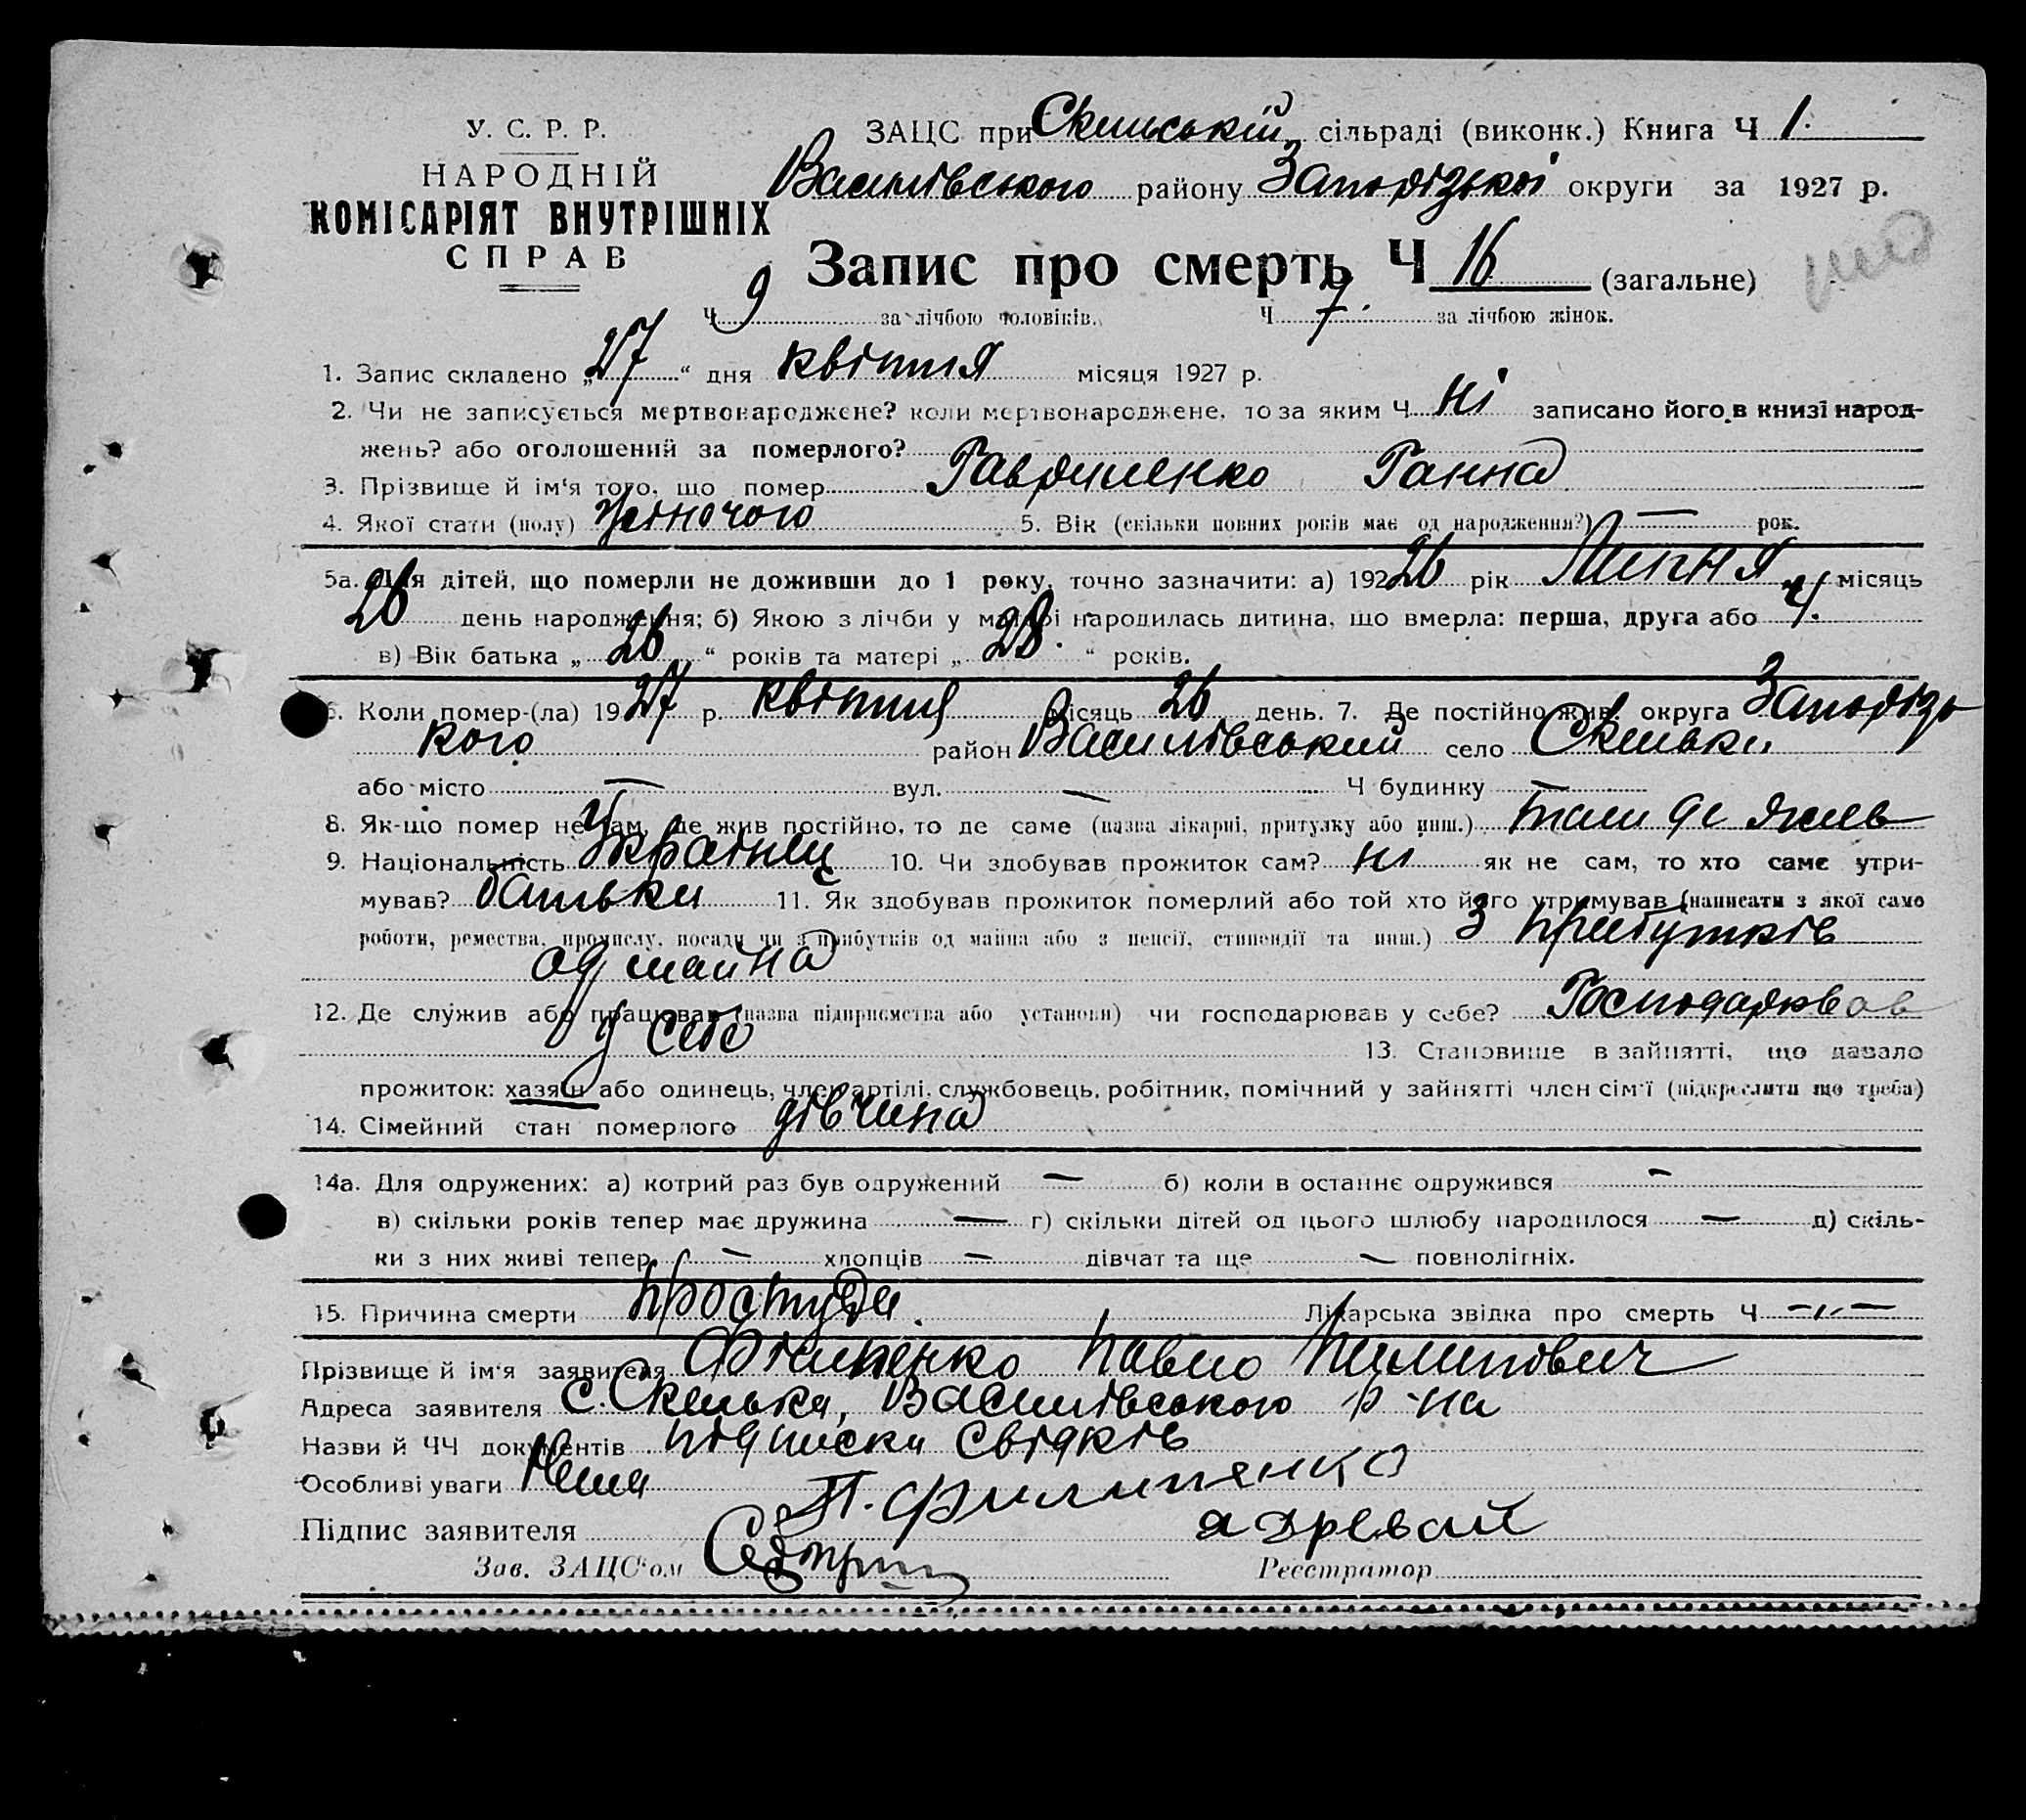 У. С. Р. Р.
НАРОДНІЙ
КОМІСАРІЯТ ВНУТРІШНІХ
СПРАВ
ЗАЦС при Скельській сільраді (виконк.) Книга Ч 1.
Василівського району Запорізької округи за 1927 р.
Запис про смерть Ч 16 (загальне)
Ч 9 за лічбою чоловіків. Ч 7. за лічбою жінок.
1. Запис складено „27“ дня квітня місяця 1927 р.
2. Чи не записується мертвонароджене? коли мертвонароджене, то за яким Ч ні записано його в книзі народ-
жень? або оголошений за померлого?
3. Прізвище й ім‘я того, що помер Гавриленко Ганна
4. Якої стати (полу) жіночого 5. Вік (скільки повних років має од народження?) — рок.
5а. Для дітей, що померли не доживши до 1 року, точно зазначити: а) 192 26 рік Липня місяць
26 день народження; б) Якою з лічби у матері народилась дитина, що вмерла: перша, друга або 4.
в) Вік батька „ 26 “ років та матері „ 28. “ років.
6. Коли помер-(ла) 19 27 р. квітня місяць 26 день. 7. Де постійно жив: округа Запорізь
кого район Василівський село Скельки
або місто — вул. — Ч будинку —
8. Як-що помер не там, де жив постійно, то де саме (назва лікарні, притулку або инш.) там де жив
9. Національність Українец 10. Чи здобував прожиток сам? ні як не сам, то хто саме утри-
мував? батьки 11. Як здобував прожиток померлий або той хто його утримував (написати з якої само
роботи, ремества, промислу, посади чи з прибутків од майна або з пенсії, стипендії та инш.) З прибутків
од майна
12. Де служив або працював (назва підприємства або установи) чи господарював у себе? Господарював
у себе
13. Становище в зайнятті, що давало
прожиток: хазяїн або одинець, член артілі, службовець, робітник, помічний у зайнятті член сім‘ї (підкреслити що треба)
14. Сімейний стан померлого дівчина
14а. Для одружених: а) котрий раз був одружений — б) коли в останнє одружився —
в) скільки років тепер має дружина — г) скільки дітей од цього шлюбу народилося — д) скіль-
ки з них живі тепер — хлопців — дівчат та ще — повнолітніх.
15. Причина смерти простуда. Лікарська звідка про смерть Ч —
Прізвище й ім‘я заявителя Філипенко Павло Пилипович
Адреса заявителя с. Скелька, Василівського р-на
Назви й ЧЧ документів підписки свідків
Особливі уваги Нема
Підпис заявителя П. Филипенко
Зав. ЗАЦС‘ом Реєстратор